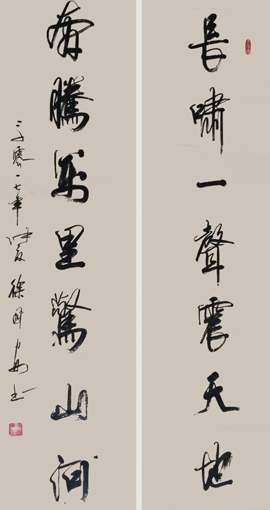 長嘯一聲震天地
奔騰萬里驚山河
二零一七年仲夏徐